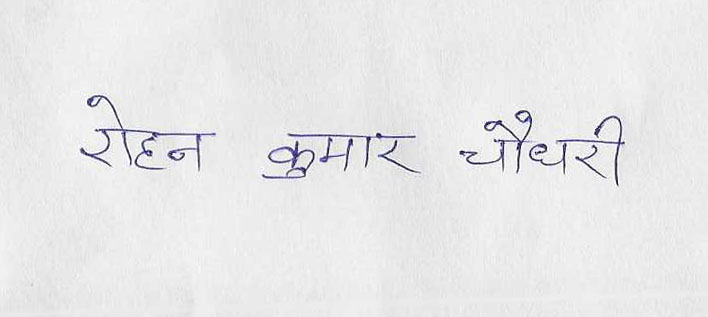 रोहन कुमार चौधरी